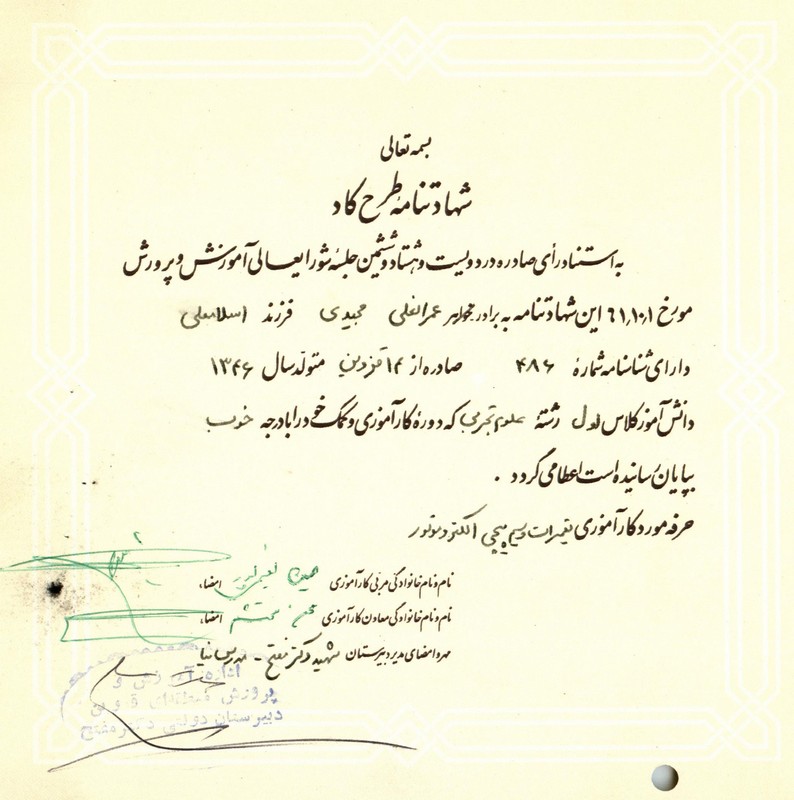 بسمه تعالی
شهادتنامه طرح کاد
به استناد رأی صادره در دویست و هشتاد و ششمین جلسه شورایعالی آموزش و پرورش
مورخ ۶۱٫۱۰٫۱ این شهادتنامه به برادر خواهر عمرانعلی مجیدی فرزند اسلامعلی
دارای شناسنامه شماره ۴۸۶ صادره از ۱۴ قزوین متولد سال ۱۳۴۶
دانش آموز کلاس اول رشته علوم تجربی که دوره کارآموزی و کمک خود را با درجه خوب
بپایان رسانیده است اعطا می گردد .
حرفه مورد کارآموزی تعمیرات و سیم پیچی الکتروموتور
نام و نام خانوادگی مربی کارآموزی امضاء
نام و نام خانوادگی معاون کارآموزی محسن محتشم امضاء
مهر و امضای مدیر دبیرستان شهید دکتر مفتح -
اداره آموزش و
پرورش منطقه‌ای
دبیرستان دولتی دکتر مفتح